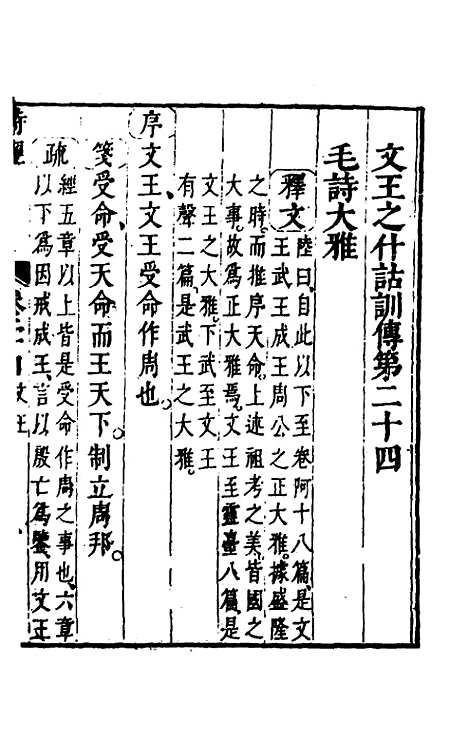 文王之什詁訓傳第二十四
毛詩大雅
釋文 陸曰、自此以下至卷阿十八篇、是文
王武王成王周公之正大雅。據盛隆
之時、而推序天命、上述祖考之美、皆國之
大事、故爲正大雅焉。文王至靈臺八篇、是
文王之大雅。下武至文王
有聲二篇、是武王之大雅。
序 文王、文王受命作周也。
箋 受命、受天命而王天下。制立周邦。
疏 經五章以上皆是受命作周之事也、六章
以下爲因戒成王、言以殷亡爲鑒、用文王
詩經 卷二十四 文王